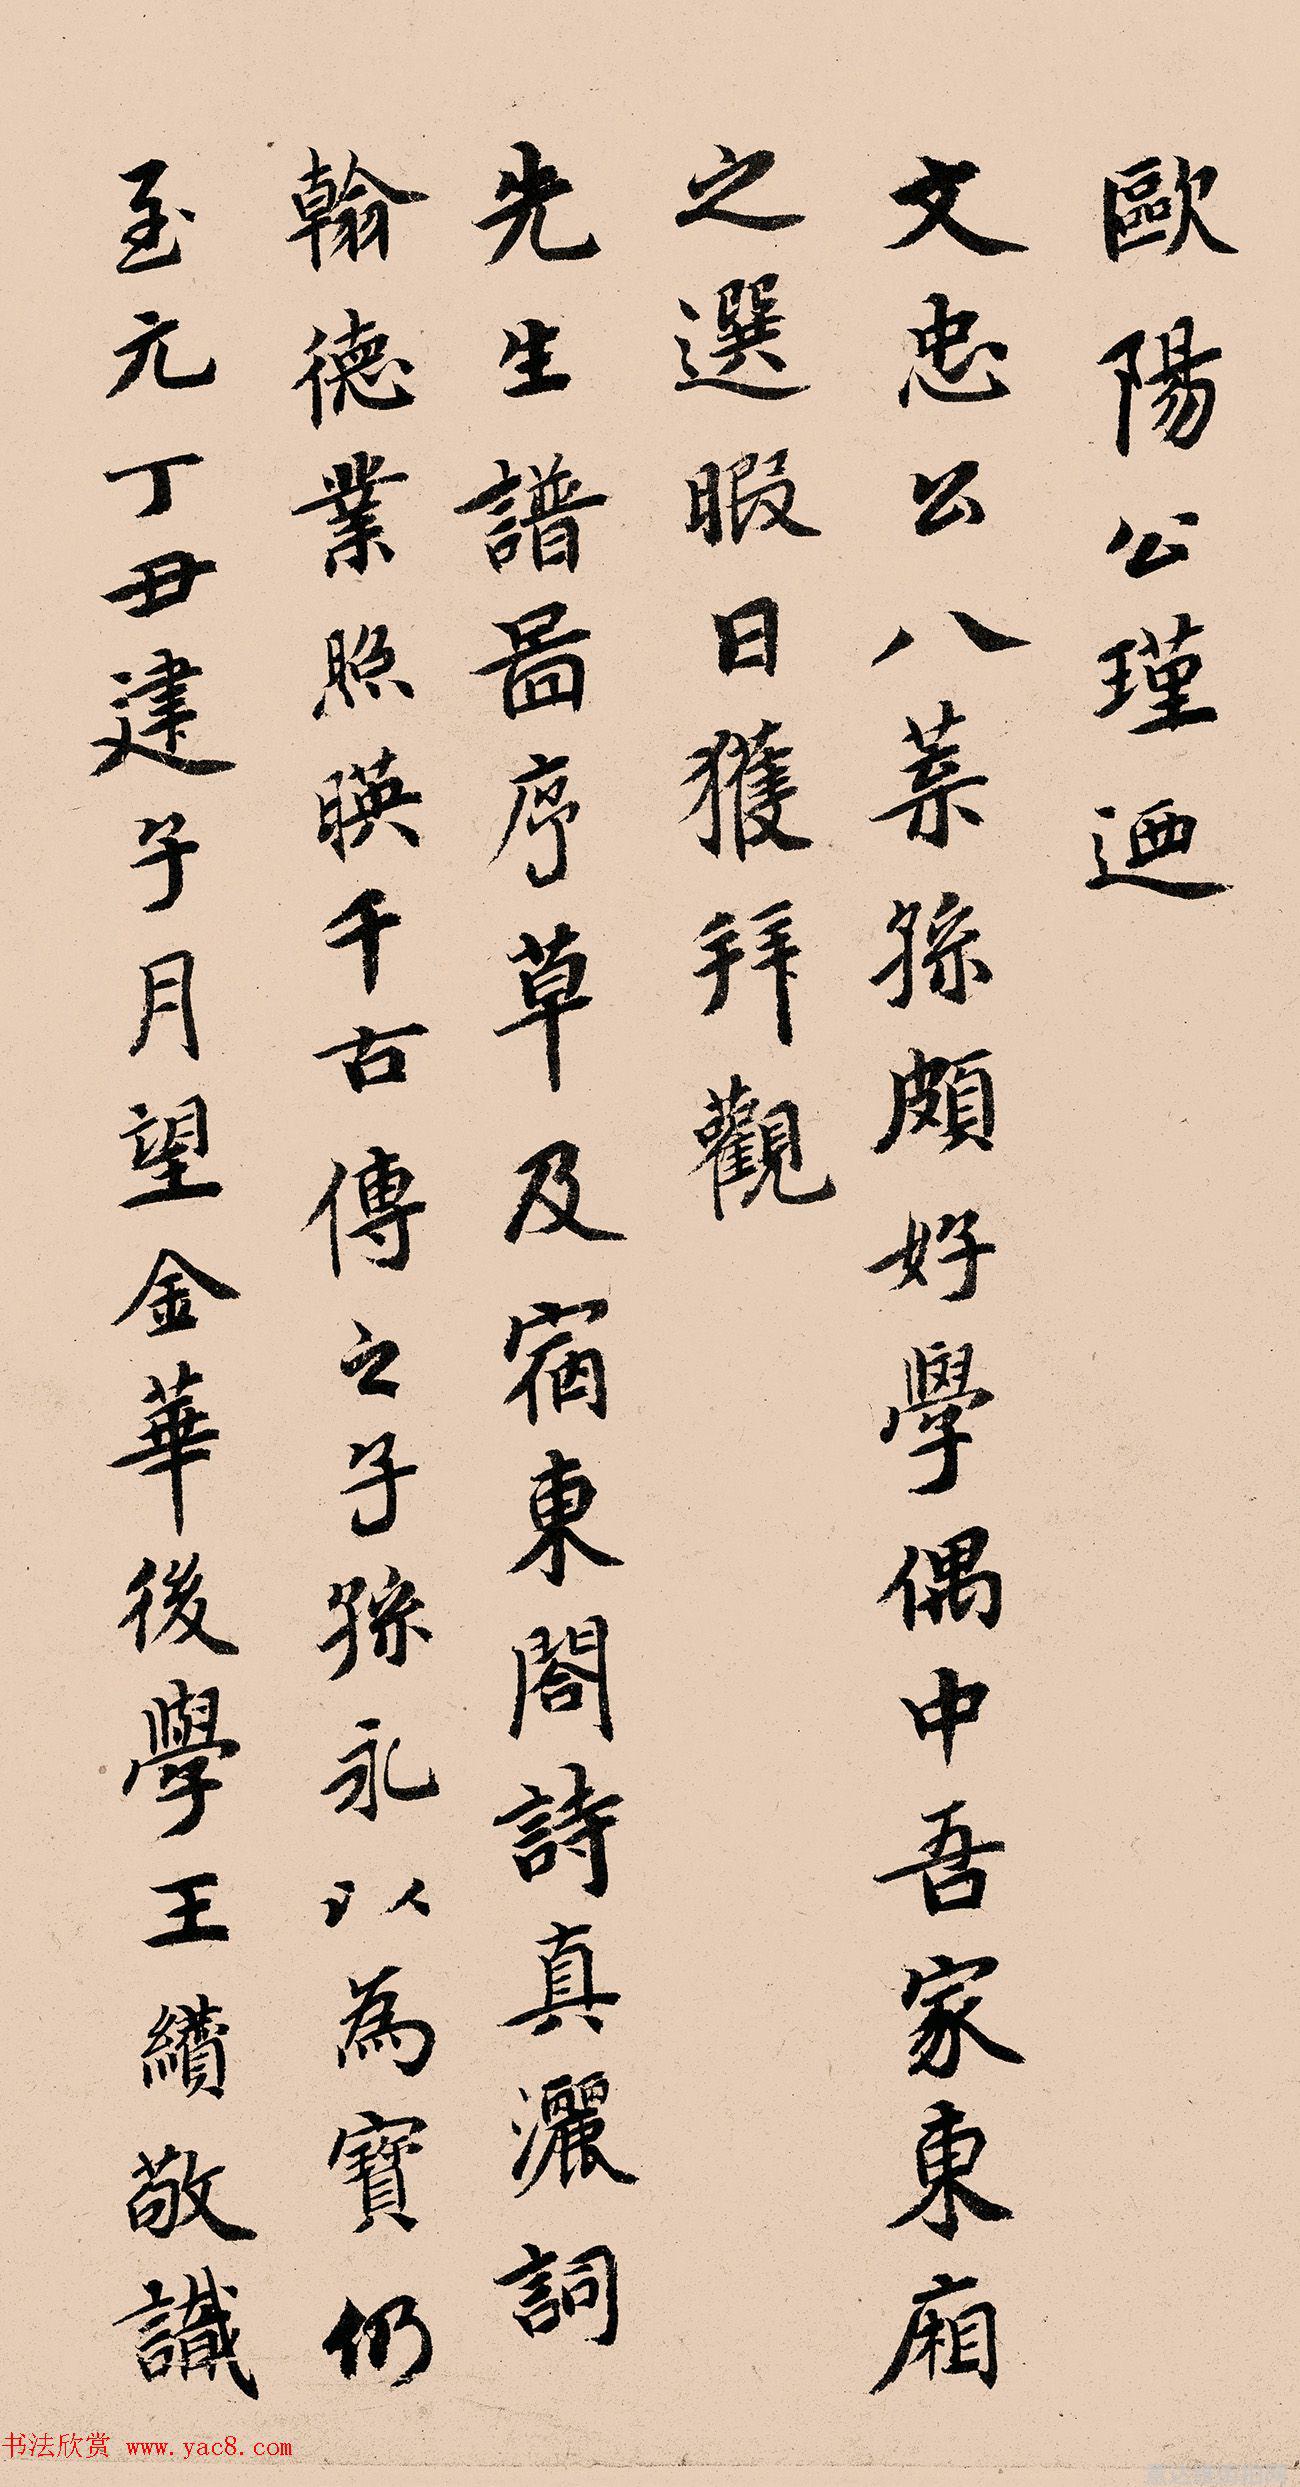 歐陽公瑾迺
文忠公八葉孫頗好學偶中吾家東廂
之選暇日獲拜觀
先生譜圖序草及宿東閤詩真灑詞
翰德業照暎千古傳之子孫永以為寶仍
至元丁丑建子月望金華後學王繢敬識
书法欣赏 www.yac8.com